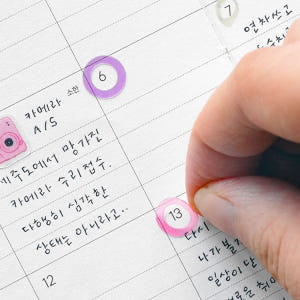 7
연차쓰고
소한
6
카메라
A/S
제주도에서 망가진
카메라 수리접수.
다행히 심각한
상태는 아니라고..
13
다시
내가 볼
일상이 단
12